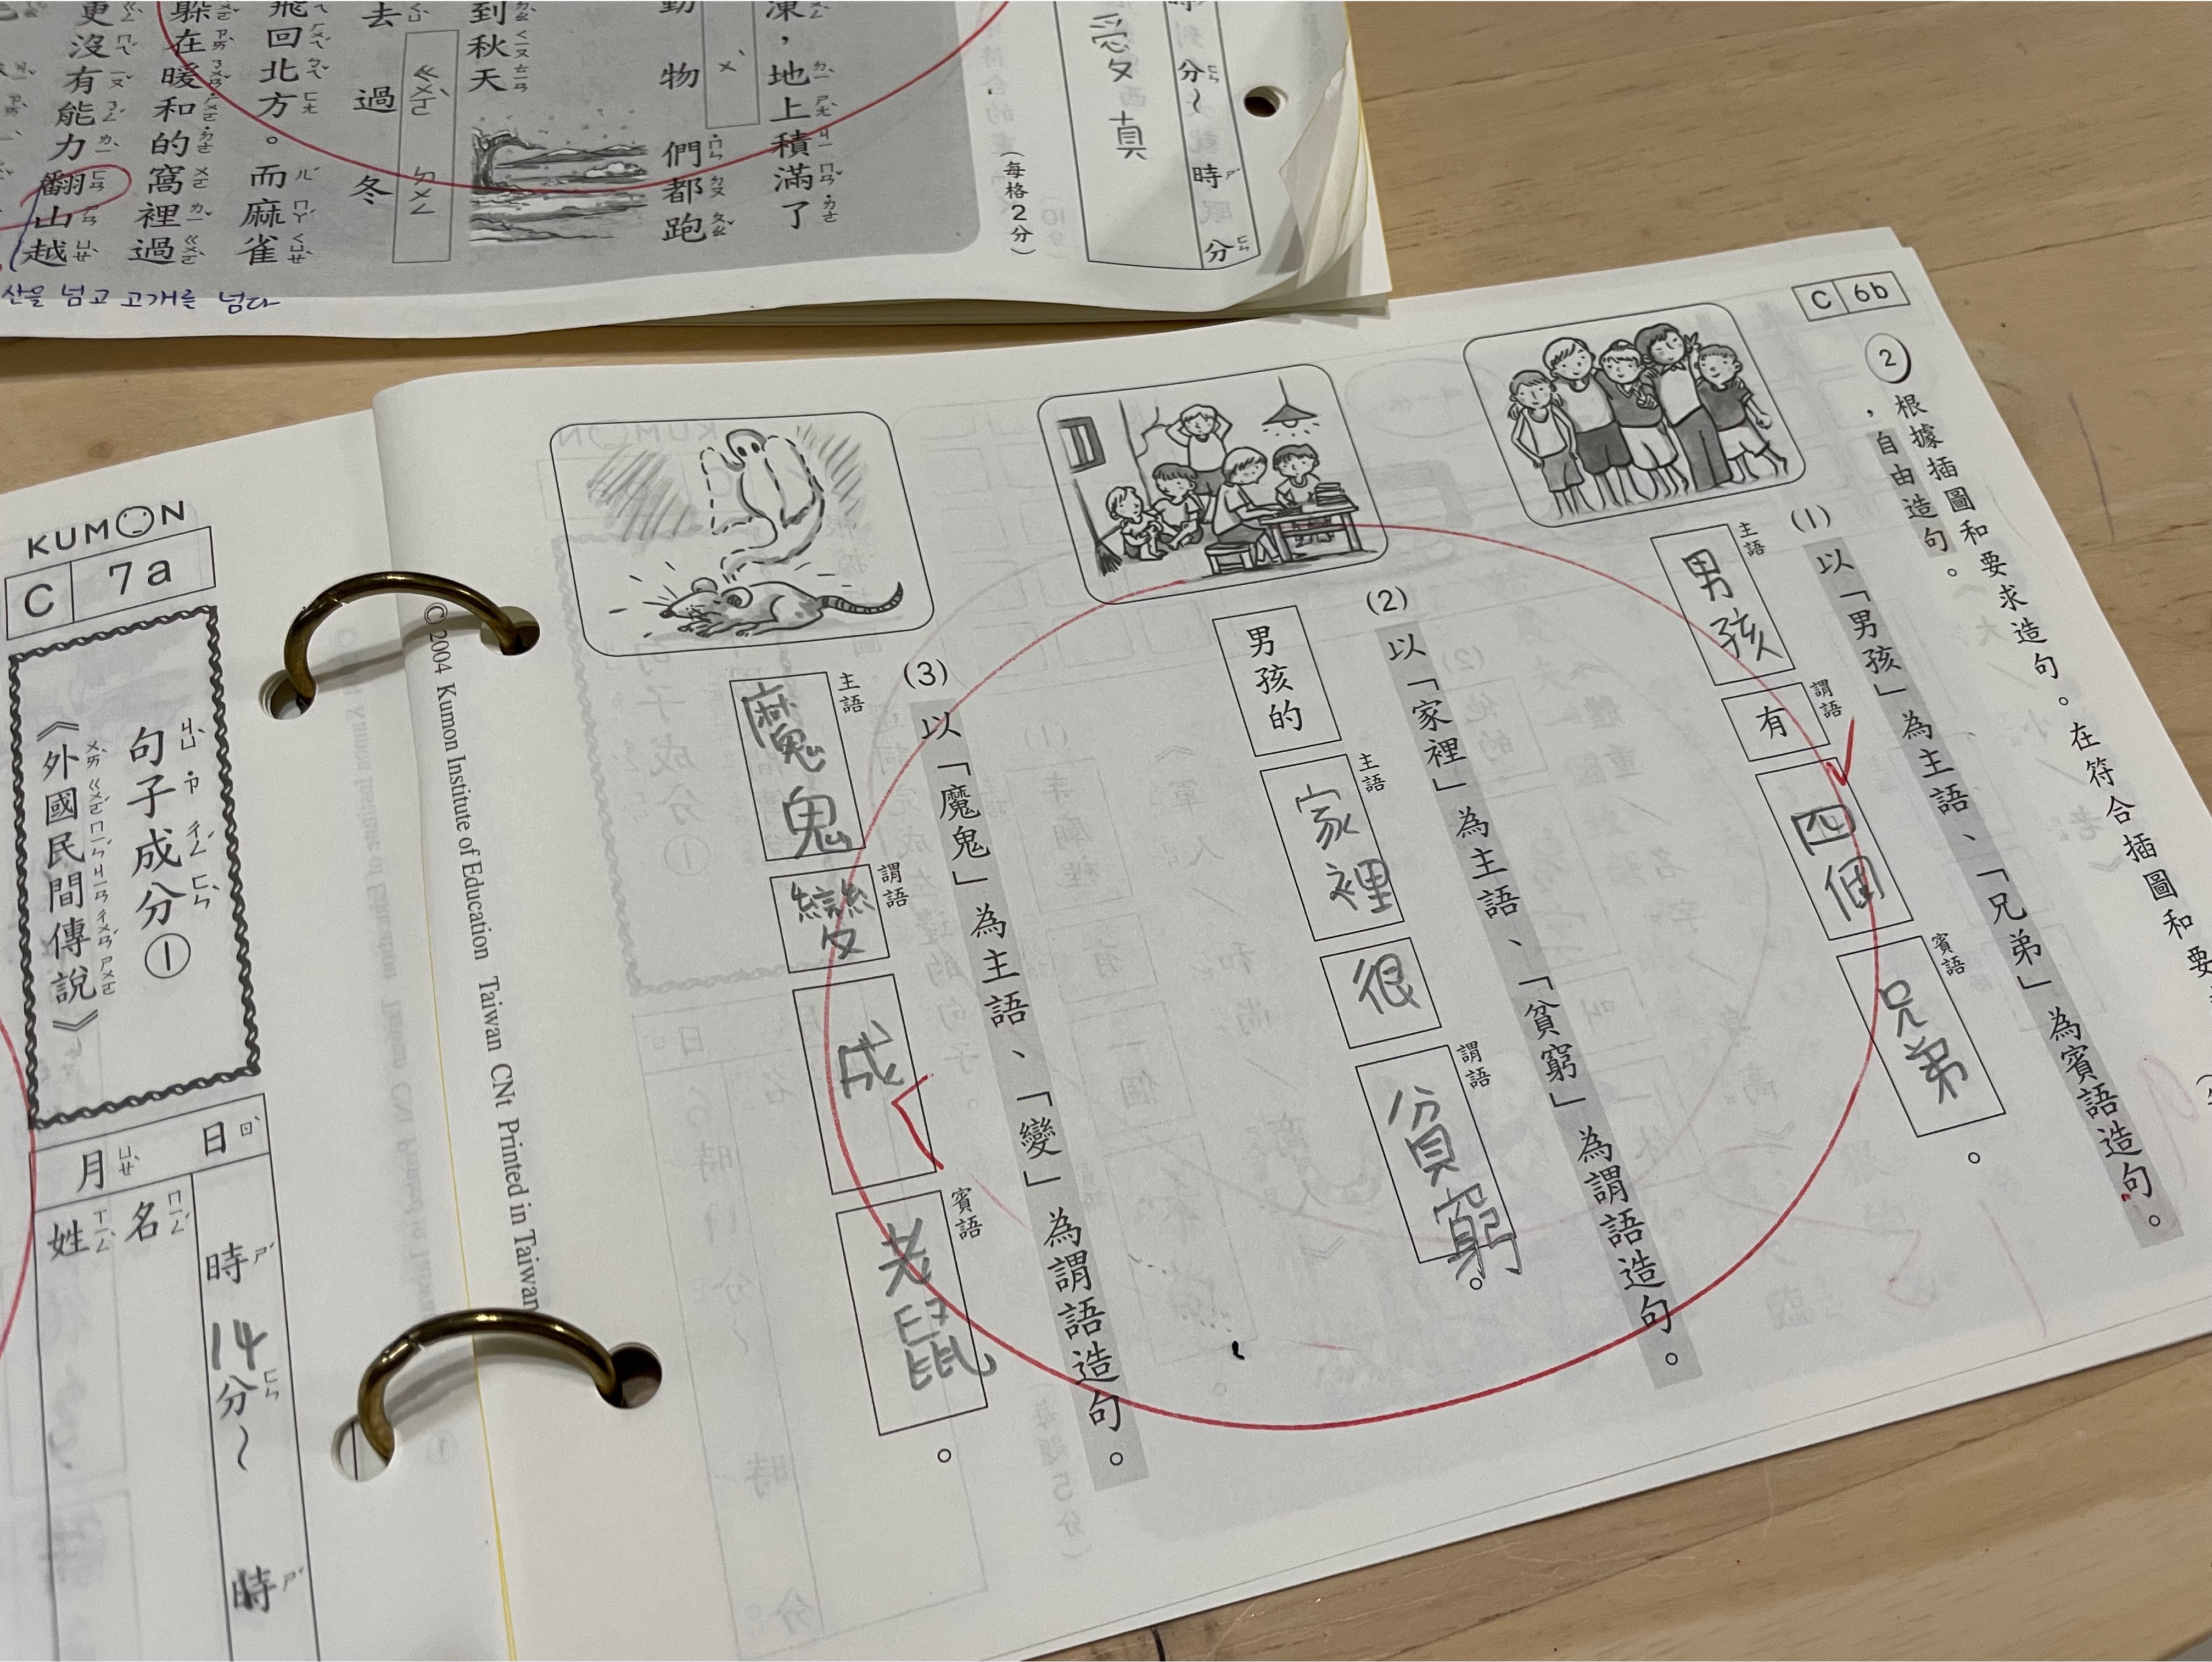 C 6b
2 根據插圖和要求造句。在符合插圖和要
，自由造句。
(1) 以「男孩」為主語、「兄弟」為賓語造句。
主語 謂語 賓語
男孩 有 四個 兄弟。
(2) 以「家裡」為主語、「貧窮」為謂語造句。
主語 謂語
男孩的 家裡 很 貧窮。
(3) 以「魔鬼」為主語、「變」為謂語造句。
主語 謂語 賓語
魔鬼 變 成 老鼠。
© 2004 Kumon Institute of Education Taiwan CNt Printed in Taiwan
KUMON
C 7a
句子成分①
ㄐㄩˋ ㄗˇ ㄔㄥˊ ㄈㄣˋ
《外國民間傳說》
ㄨㄞˋ ㄍㄨㄛˊ ㄇㄧㄣˊ ㄐㄧㄢ ㄔㄨㄢˊ ㄕㄨㄛ
月 日
姓名
時14分～ 時
分～ 時 分
愛真
(每格2分)
凍，地上積滿了
動物 們都跑
到秋天
去 過 冬
ㄍㄨㄛˋ ㄉㄨㄥ
飛回北方。而麻雀
躲在暖和的窩裡過
更沒有能力翻山越
산을 넘고 고개를 넘다